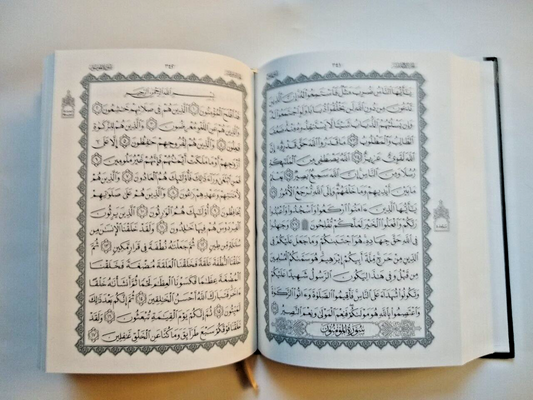 يَٰٓأَيُّهَا ٱلنَّاسُ ضُرِبَ مَثَلٞ فَٱسۡتَمِعُواْ لَهُۥٓۚ إِنَّ ٱلَّذِينَ
تَدۡعُونَ مِن دُونِ ٱللَّهِ لَن يَخۡلُقُواْ ذُبَابٗا وَلَوِ ٱجۡتَمَعُواْ لَهُۥۖ
وَإِن يَسۡلُبۡهُمُ ٱلذُّبَابُ شَيۡـٔٗا لَّا يَسۡتَنقِذُوهُ مِنۡهُۚ ضَعُفَ
ٱلطَّالِبُ وَٱلۡمَطۡلُوبُ ٧٣ مَا قَدَرُواْ ٱللَّهَ حَقَّ قَدۡرِهِۦٓۚ إِنَّ
ٱللَّهَ لَقَوِيٌّ عَزِيزٌ ٧٤ ٱللَّهُ يَصۡطَفِي مِنَ ٱلۡمَلَٰٓئِكَةِ
رُسُلٗا وَمِنَ ٱلنَّاسِۚ إِنَّ ٱللَّهَ سَمِيعُۢ بَصِيرٞ ٧٥ يَعۡلَمُ
مَا بَيۡنَ أَيۡدِيهِمۡ وَمَا خَلۡفَهُمۡۚ وَإِلَى ٱللَّهِ تُرۡجَعُ ٱلۡأُمُورُ ٧٦
يَٰٓأَيُّهَا ٱلَّذِينَ ءَامَنُواْ ٱرۡكَعُواْ وَٱسۡجُدُواْ وَٱعۡبُدُواْ
رَبَّكُمۡ وَٱفۡعَلُواْ ٱلۡخَيۡرَ لَعَلَّكُمۡ تُفۡلِحُونَ۩ ٧٧ وَجَٰهِدُواْ
فِي ٱللَّهِ حَقَّ جِهَادِهِۦۚ هُوَ ٱجۡتَبَىٰكُمۡ وَمَا جَعَلَ عَلَيۡكُمۡ فِي
ٱلدِّينِ مِنۡ حَرَجٖۚ مِّلَّةَ أَبِيكُمۡ إِبۡرَٰهِيمَۚ هُوَ سَمَّىٰكُمُ ٱلۡمُسۡلِمِينَ
مِن قَبۡلُ وَفِي هَٰذَا لِيَكُونَ ٱلرَّسُولُ شَهِيدًا عَلَيۡكُمۡ
وَتَكُونُواْ شُهَدَآءَ عَلَى ٱلنَّاسِۚ فَأَقِيمُواْ ٱلصَّلَوٰةَ وَءَاتُواْ ٱلزَّكَوٰةَ
وَٱعۡتَصِمُواْ بِٱللَّهِ هُوَ مَوۡلَىٰكُمۡۖ فَنِعۡمَ ٱلۡمَوۡلَىٰ وَنِعۡمَ ٱلنَّصِيرُ ٧٨
سُورَةُ المُؤۡمِنُون
بِسۡمِ ٱللَّهِ ٱلرَّحۡمَٰنِ ٱلرَّحِيمِ
قَدۡ أَفۡلَحَ ٱلۡمُؤۡمِنُونَ ١ ٱلَّذِينَ هُمۡ فِي صَلَاتِهِمۡ خَٰشِعُونَ ٢
وَٱلَّذِينَ هُمۡ عَنِ ٱللَّغۡوِ مُعۡرِضُونَ ٣ وَٱلَّذِينَ هُمۡ لِلزَّكَوٰةِ
فَٰعِلُونَ ٤ وَٱلَّذِينَ هُمۡ لِفُرُوجِهِمۡ حَٰفِظُونَ ٥ إِلَّا عَلَىٰٓ
أَزۡوَٰجِهِمۡ أَوۡ مَا مَلَكَتۡ أَيۡمَٰنُهُمۡ فَإِنَّهُمۡ غَيۡرُ مَلُومِينَ ٦
فَمَنِ ٱبۡتَغَىٰ وَرَآءَ ذَٰلِكَ فَأُوْلَٰٓئِكَ هُمُ ٱلۡعَادُونَ ٧ وَٱلَّذِينَ هُمۡ
لِأَمَٰنَٰتِهِمۡ وَعَهۡدِهِمۡ رَٰعُونَ ٨ وَٱلَّذِينَ هُمۡ عَلَىٰ صَلَوَٰتِهِمۡ
يُحَافِظُونَ ٩ أُوْلَٰٓئِكَ هُمُ ٱلۡوَٰرِثُونَ ١٠ ٱلَّذِينَ يَرِثُونَ
ٱلۡفِرۡدَوۡسَ هُمۡ فِيهَا خَٰلِدُونَ ١١ وَلَقَدۡ خَلَقۡنَا ٱلۡإِنسَٰنَ مِن
سُلَٰلَةٖ مِّن طِينٖ ١٢ ثُمَّ جَعَلۡنَٰهُ نُطۡفَةٗ فِي قَرَارٖ مَّكِينٖ ١٣ ثُمَّ
خَلَقۡنَا ٱلنُّطۡفَةَ عَلَقَةٗ فَخَلَقۡنَا ٱلۡعَلَقَةَ مُضۡغَةٗ فَخَلَقۡنَا
ٱلۡمُضۡغَةَ عِظَٰمٗا فَكَسَوۡنَا ٱلۡعِظَٰمَ لَحۡمٗا ثُمَّ أَنشَأۡنَٰهُ خَلۡقًا
ءَاخَرَۚ فَتَبَارَكَ ٱللَّهُ أَحۡسَنُ ٱلۡخَٰلِقِينَ ١٤ ثُمَّ إِنَّكُم بَعۡدَ
ذَٰلِكَ لَمَيِّتُونَ ١٥ ثُمَّ إِنَّكُمۡ يَوۡمَ ٱلۡقِيَٰمَةِ تُبۡعَثُونَ ١٦ وَلَقَدۡ
خَلَقۡنَا فَوۡقَكُمۡ سَبۡعَ طَرَآئِقَ وَمَا كُنَّا عَنِ ٱلۡخَلۡقِ غَٰفِلِينَ ١٧